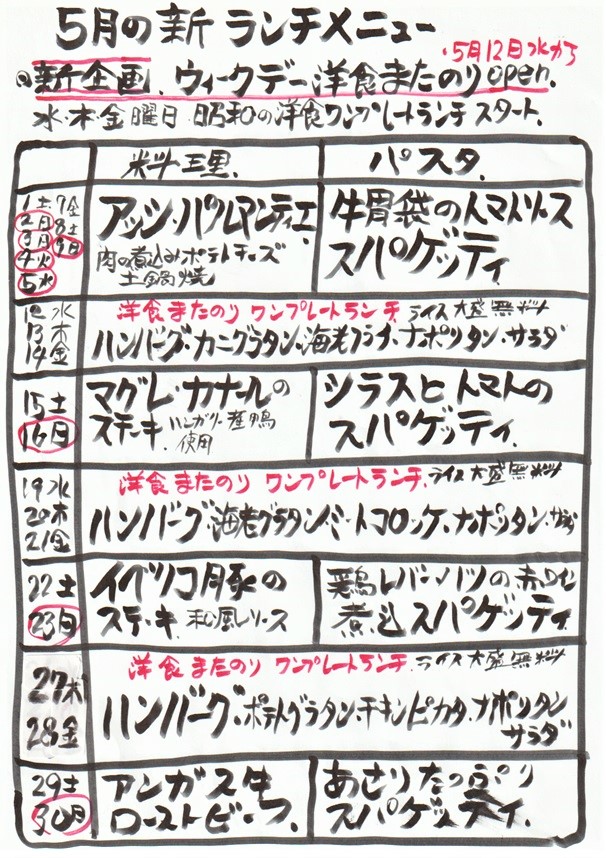 5月の新ランチメニュー
・5月12日水から
新企画、ウィークデー洋食またのりopen.
水・木・金曜日 昭和の洋食ワンプレートランチスタート、
料理 パスタ
1土7金
2日8土
3月9日
4火
5水
アッシ・パルマンティエ、
肉の煮込みポテトチーズ
土鍋焼
牛胃袋のトマトソース
スパゲッティ
12水
13木
14金
洋食またのり ワンプレートランチ、ライス大盛無料
ハンバーグ・カニグラタン、海老フライ・ナポリタン・サラダ
15土
16日
マグレ・カナールの
ステーキ ハンガリー産鴨
使用
シラスとトマトの
スパゲッティ.
19水
20木
21金
洋食またのり ワンプレートランチ、ライス大盛無料
ハンバーグ・海老グラタン・ミートコロッケ・ナポリタン・サラダ
22土
23日
イベリコ豚の
ステーキ、和風ソース
鶏レバー・ハツの赤ワイン
煮込スパゲッティ.
27木
28金
洋食またのり ワンプレートランチ、ライス大盛無料
ハンバーグ・ポテトグラタン・チキンピカタ・ナポリタン
サラダ
29土
30日
アンガス牛
ローストビーフ、
あさりたっぷり
スパゲッティ.